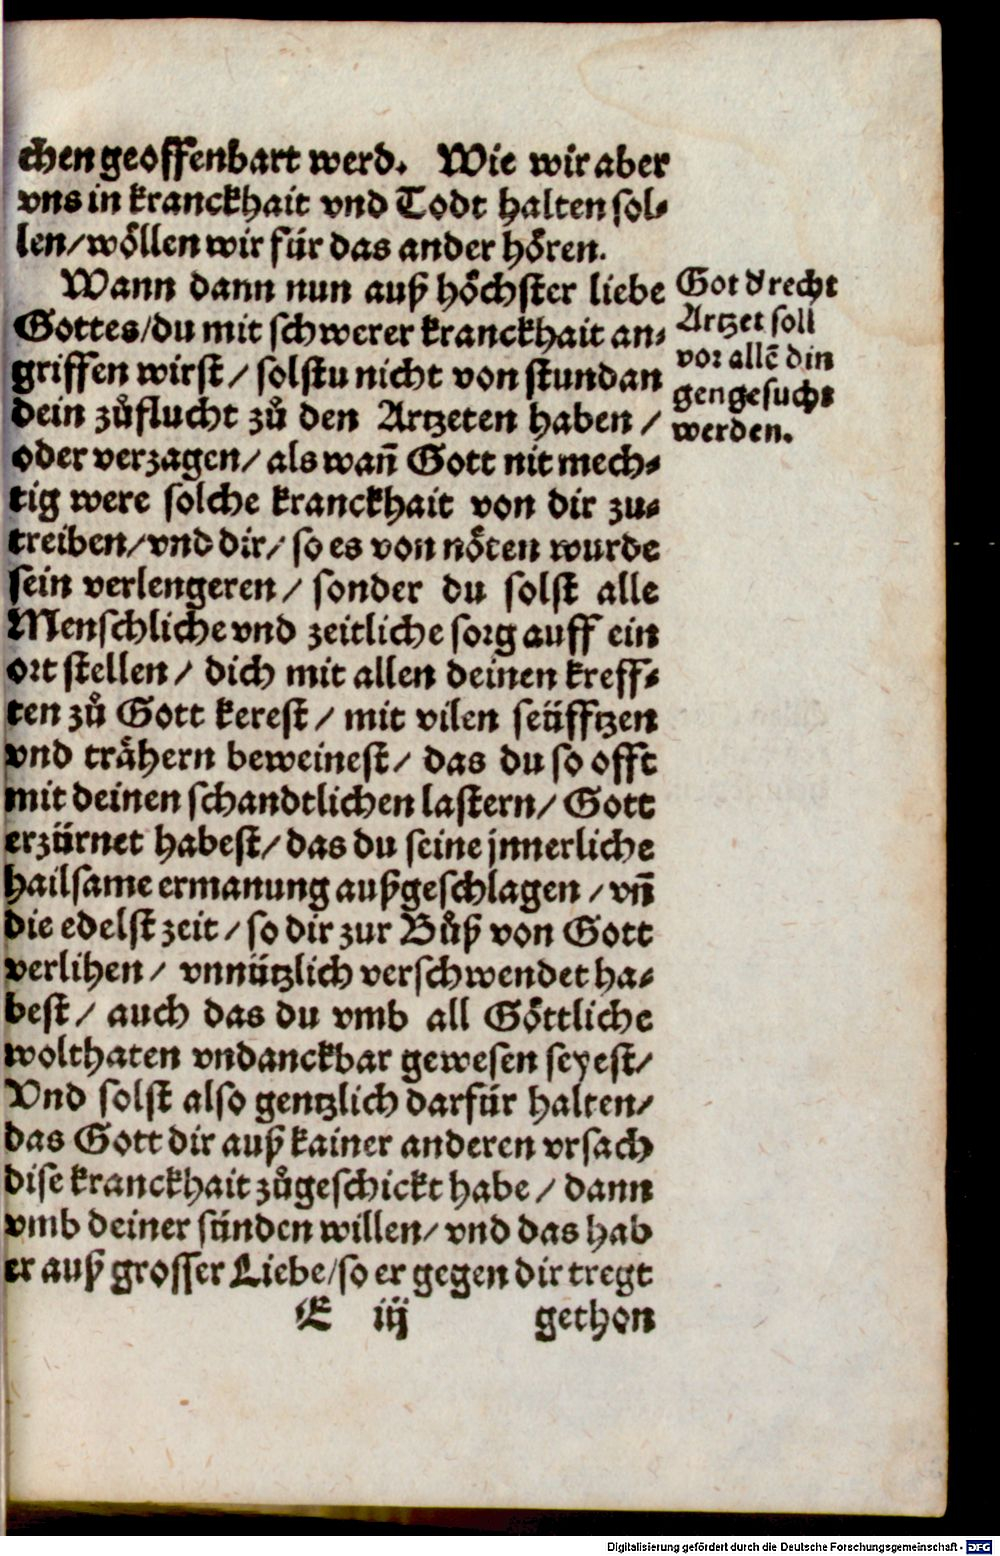 chen geoffenbart werd. Wie wir aber
vns in kranckhait vnd Todt halten sol⸗
len/ wöllen wir für das ander hören.
Wann dann nun auß höchster liebe
Gottes/ du mit schwerer kranckhait an⸗
griffen wirst/ solstu nicht von stundan
dein zůflucht zů den Artzeten haben/
oder verzagen/ als wañ Gott nit mech⸗
tig were solche kranckhait von dir zu⸗
treiben/ vnd dir/ so es von nöten wurde
sein verlengeren/ sonder du solst alle
Menschliche vnd zeitliche sorg auff ein
ort stellen/ dich mit allen deinen kreff⸗
ten zů Gott kerest/ mit vilen seüfftzen
vnd trähern beweinest/ das du so offt
mit deinen schandtlichen lastern/ Gott
erzürnet habest/ das du seine jnnerliche
hailsame ermanung außgeschlagen/ vñ
die edelst zeit/ so dir zur Bůß von Gott
verlihen/ vnnützlich verschwendet ha⸗
best/ auch das du vmb all Göttliche
wolthaten vndanckbar gewesen seyest/
Vnd solst also gentzlich darfür halten/
das Gott dir auß kainer anderen vrsach
dise kranckhait zůgeschickt habe/ dann
vmb deiner sünden willen/ vnd das hab
er auß grosser Liebe/ so er gegen dir tregt
E iij gethon
Got d' recht
Artzet soll
vor allẽ din
gen gesucht
werden.
Digitalisierung gefördert durch die Deutsche Forschungsgemeinschaft - DFG